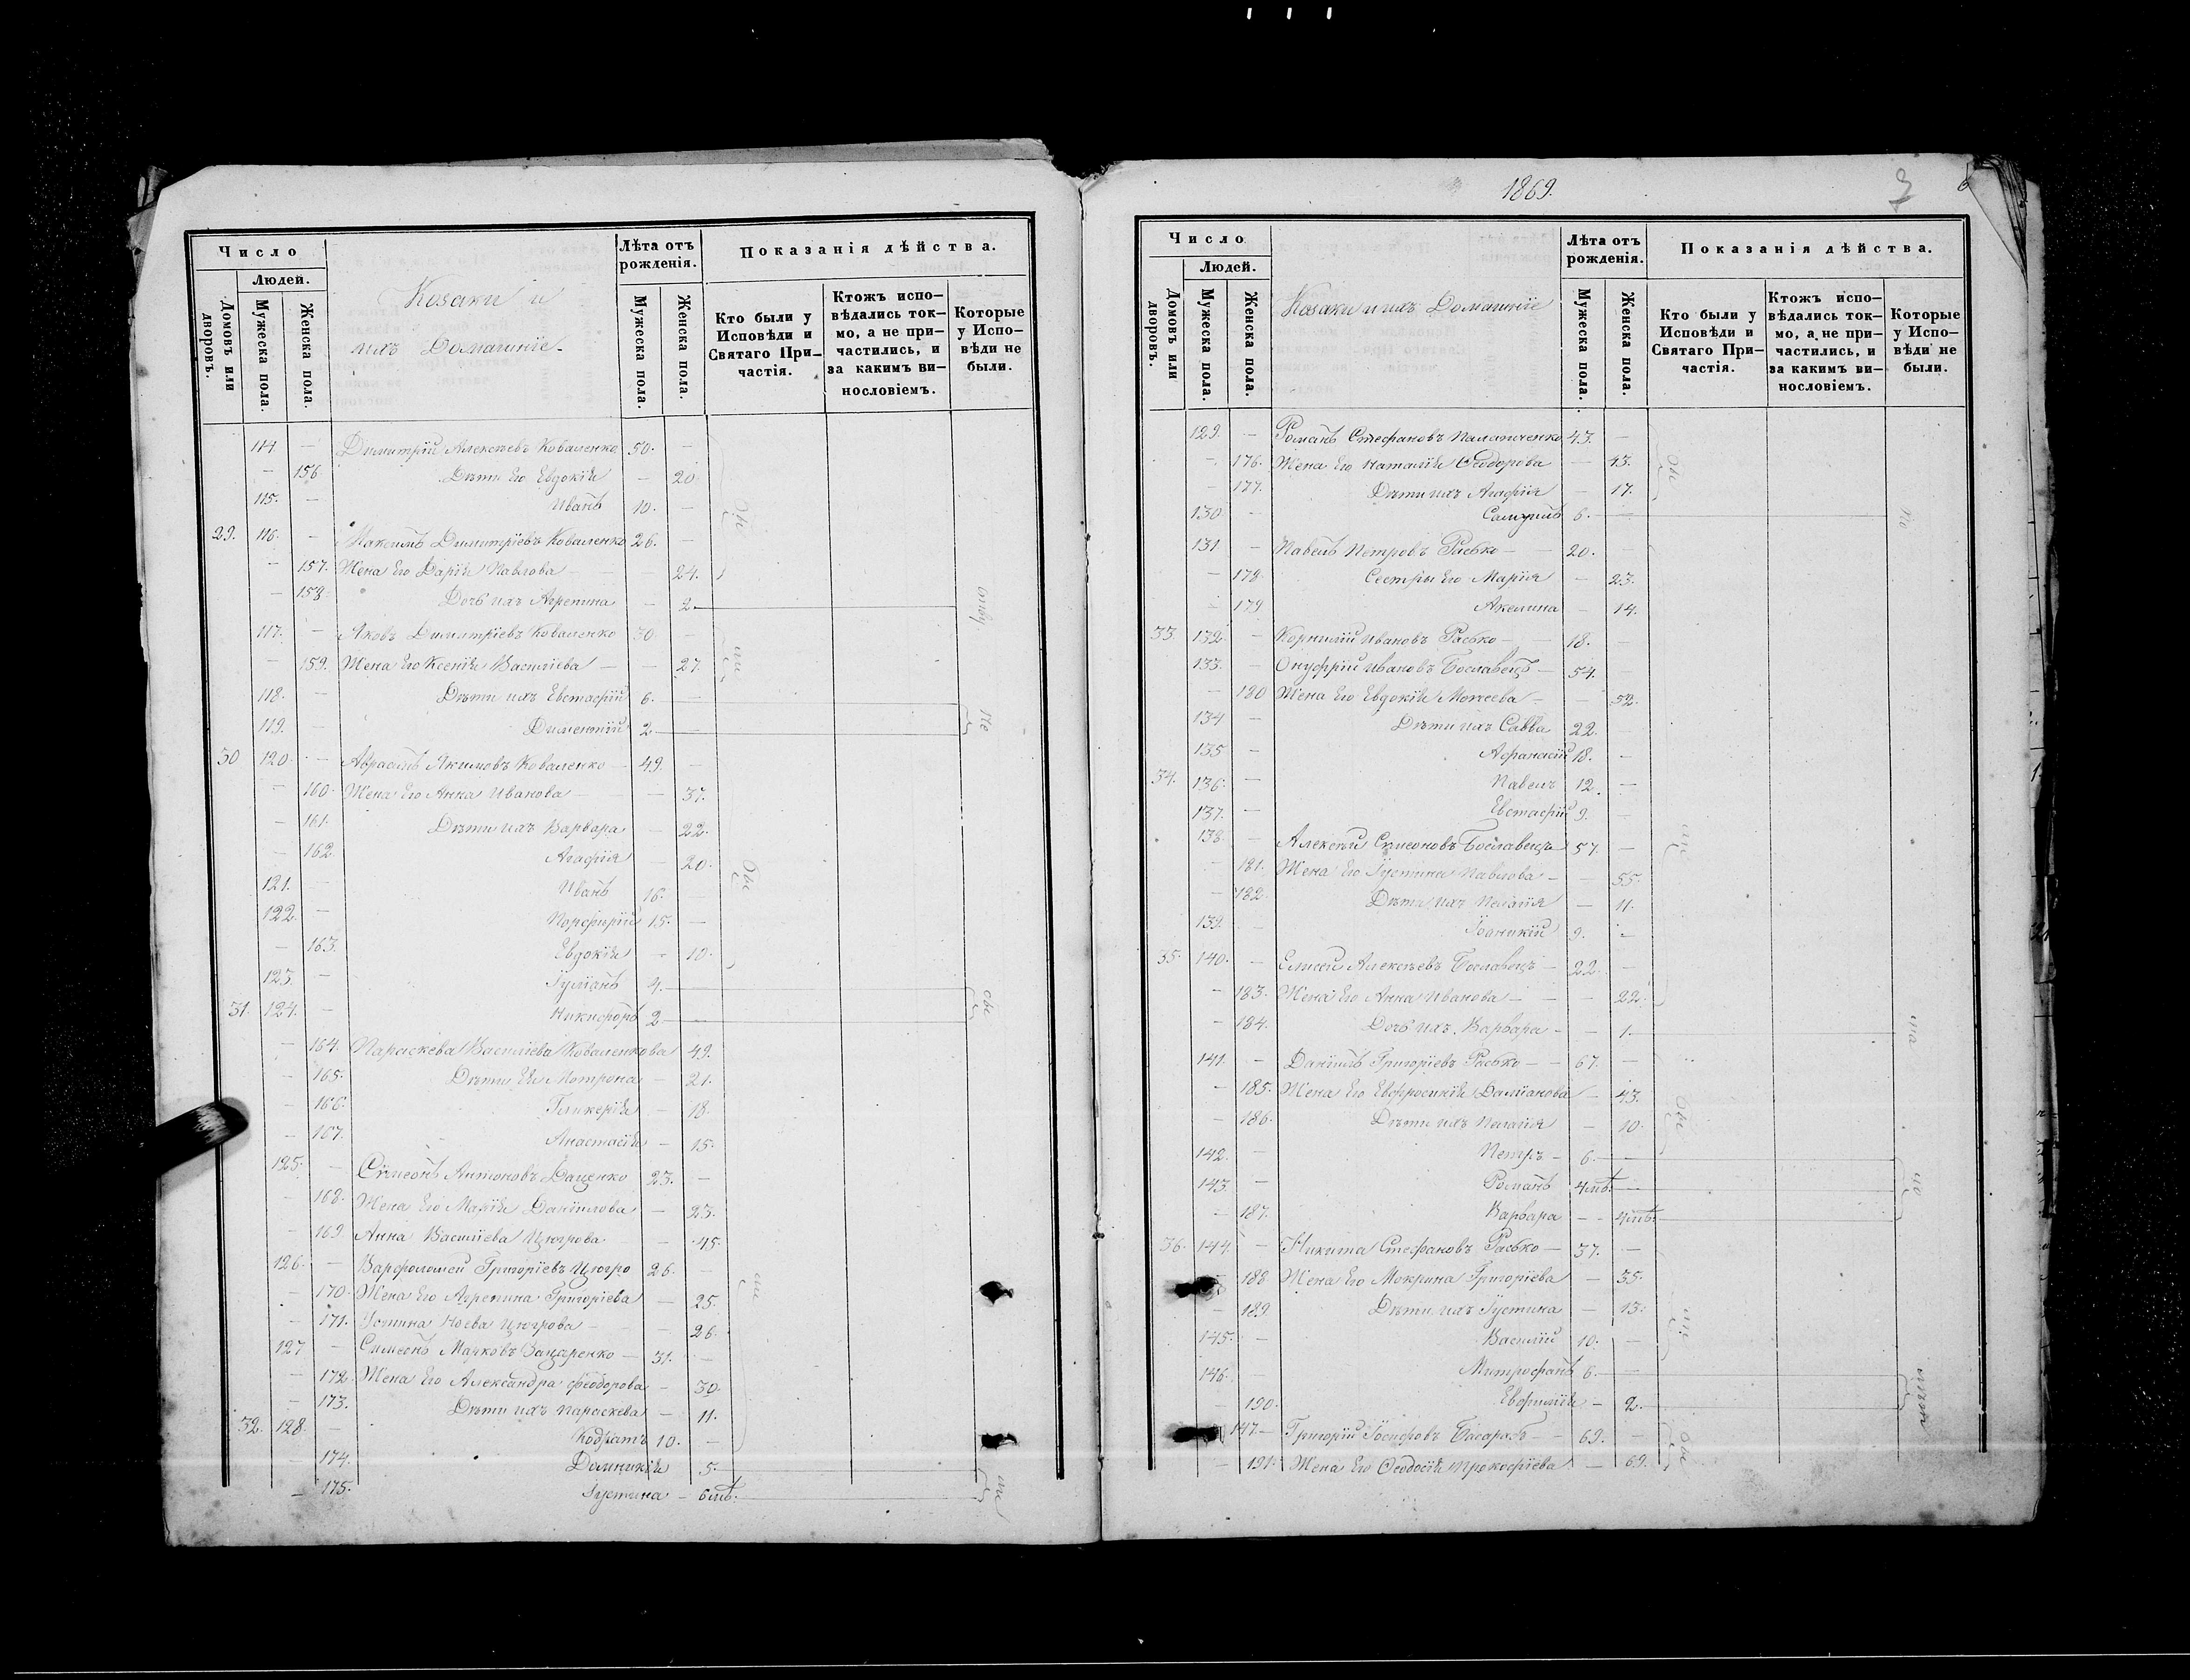 Число
Людей.
Домовъ или дворовъ.
Мужеска пола.
Женска пола.
Козаки и
ихъ Домашніе
Лѣта отъ рожденія.
Мужеска пола.
Женска пола.
Показанія дѣйства.
Кто были у Исповѣди и Святаго При-частія.
Ктожъ испо-вѣдались ток-мо, а не при-частились, и за какимъ ви-нословіемъ.
Которые у Испо-вѣди не были.
114 — Димитрій Алексѣевъ Коваленко 50. —
— 156 Дѣти Его Евдокія — 20
115. — Иванъ 10. —
29. 116. — Максимъ Димитріевъ Коваленко 26. —
— 157. Жена Его Дарія Павлова — 24.
— 158. Дочь ихъ Агрепина — 2
117. — Яковъ Димитріевъ Коваленко 30 —
— 159. Жена Его Ксенія Василіева — 27.
118. — Дѣти ихъ Евстафій 6. —
119. — Диментій 2
30 120. — Авраамъ Якимовъ Коваленко 49. —
— 160. Жена Его Анна Иванова — 37.
— 161. Дѣти ихъ Варвара — 22.
— 162. Агафія — 20.
121. — Иванъ 16. —
122. — Порфирій 15. —
— 163. Евдокія — 10.
123. — Іуліанъ 4.
31. 124. — Никифоръ 2.
— 164. Параскева Василіева Коваленкова 49.
— 165. Дѣти Ея Мотрона — 21.
— 166. Гликерія — 18.
— 167. Анастасія — 15.
125. — Сѵмеонъ Антоновъ Даценко 23. —
— 168. Жена Его Марія Даніилова — 23.
— 169 Анна Василіева Цюгрова — 45.
126. — Варфоломей Григоріевъ Цюгро 26. —
— 170. Жена Его Агрепина Григоріева — 25.
— 171. Устина Ноева Цюгрова — 26.
127 — Симеонъ Марковъ Захаренко 31. —
— 172. Жена Его Александра Феодорова — 30.
— 173. Дѣти ихъ Параскева — 11.
32. 128. — Кодратъ 10. —
— 174. Домникія 5.
— 175. Іустина — 6 мѣ.
1869.
Число
Людей.
Домовъ или дворовъ.
Мужеска пола.
Женска пола.
Козаки и ихъ Домашніе
Лѣта отъ рожденія.
Мужеска пола.
Женска пола.
Показанія дѣйства.
Кто были у Исповѣди и Святаго При-частія.
Ктожъ испо-вѣдались ток-мо, а не при-частились, и за какимъ ви-нословіемъ.
Которые у Испо-вѣди не были.
129. — Романъ Стефановъ 43. —
— 176. Жена Его Наталія Ѳеодорова — 43.
— 177. Дѣти ихъ Агафія — 17.
130 — Самуилъ 6. —
131. — Павелъ Петровъ Расько — 20. —
— 178. Сестры Его Марія — 23.
— 179 Акелина — 14.
33. 132. — Корнилій Ивановъ Расько — 18. —
133. — Онуфрій Ивановъ Богславецъ — 54. —
— 180 Жена Его Евдокія Моисеева — 52.
134 — Дѣти ихъ Савва 22. —
135 — Афанасій 18. —
34. 136. — Павелъ 12. —
137. — Евстафій 9. —
138. — Алексѣй Симеоновъ Богславецъ 57. —
— 181. Жена Его Іустина Павлова — 55.
— 182. Дѣти ихъ Пелагія — 11.
139. — Іоаникій 9. —
35. 140. — Елисей Алексѣевъ Богславецъ — 22. —
— 183. Жена Его Анна Иванова — 22.
— 184. Дочь ихъ Варвара — 1.
141. — Даніилъ Григоріевъ Расько — 67. —
— 185. Жена Его Евфросинія Даміанова — 43.
— 186. Дѣти ихъ Пелагія — 10.
142. — Петръ — 6. —
143. — Романъ 4 мѣ. —
— 187. Варвара — 4 мѣ.
36. 144. — Никита Стефановъ Расько — 37. —
188 Жена Его Мокрина Григоріева — 35.
— 189. Дѣти ихъ Іустина — 13.
145. — Василій 10. —
146. — Митрофанъ 6. —
— 190. Евфимія — 2.
147. — Григорій Іосифовъ Басарабъ — 69. —
— 191. Жена Его Ѳеодосія Прокофіева — 69.